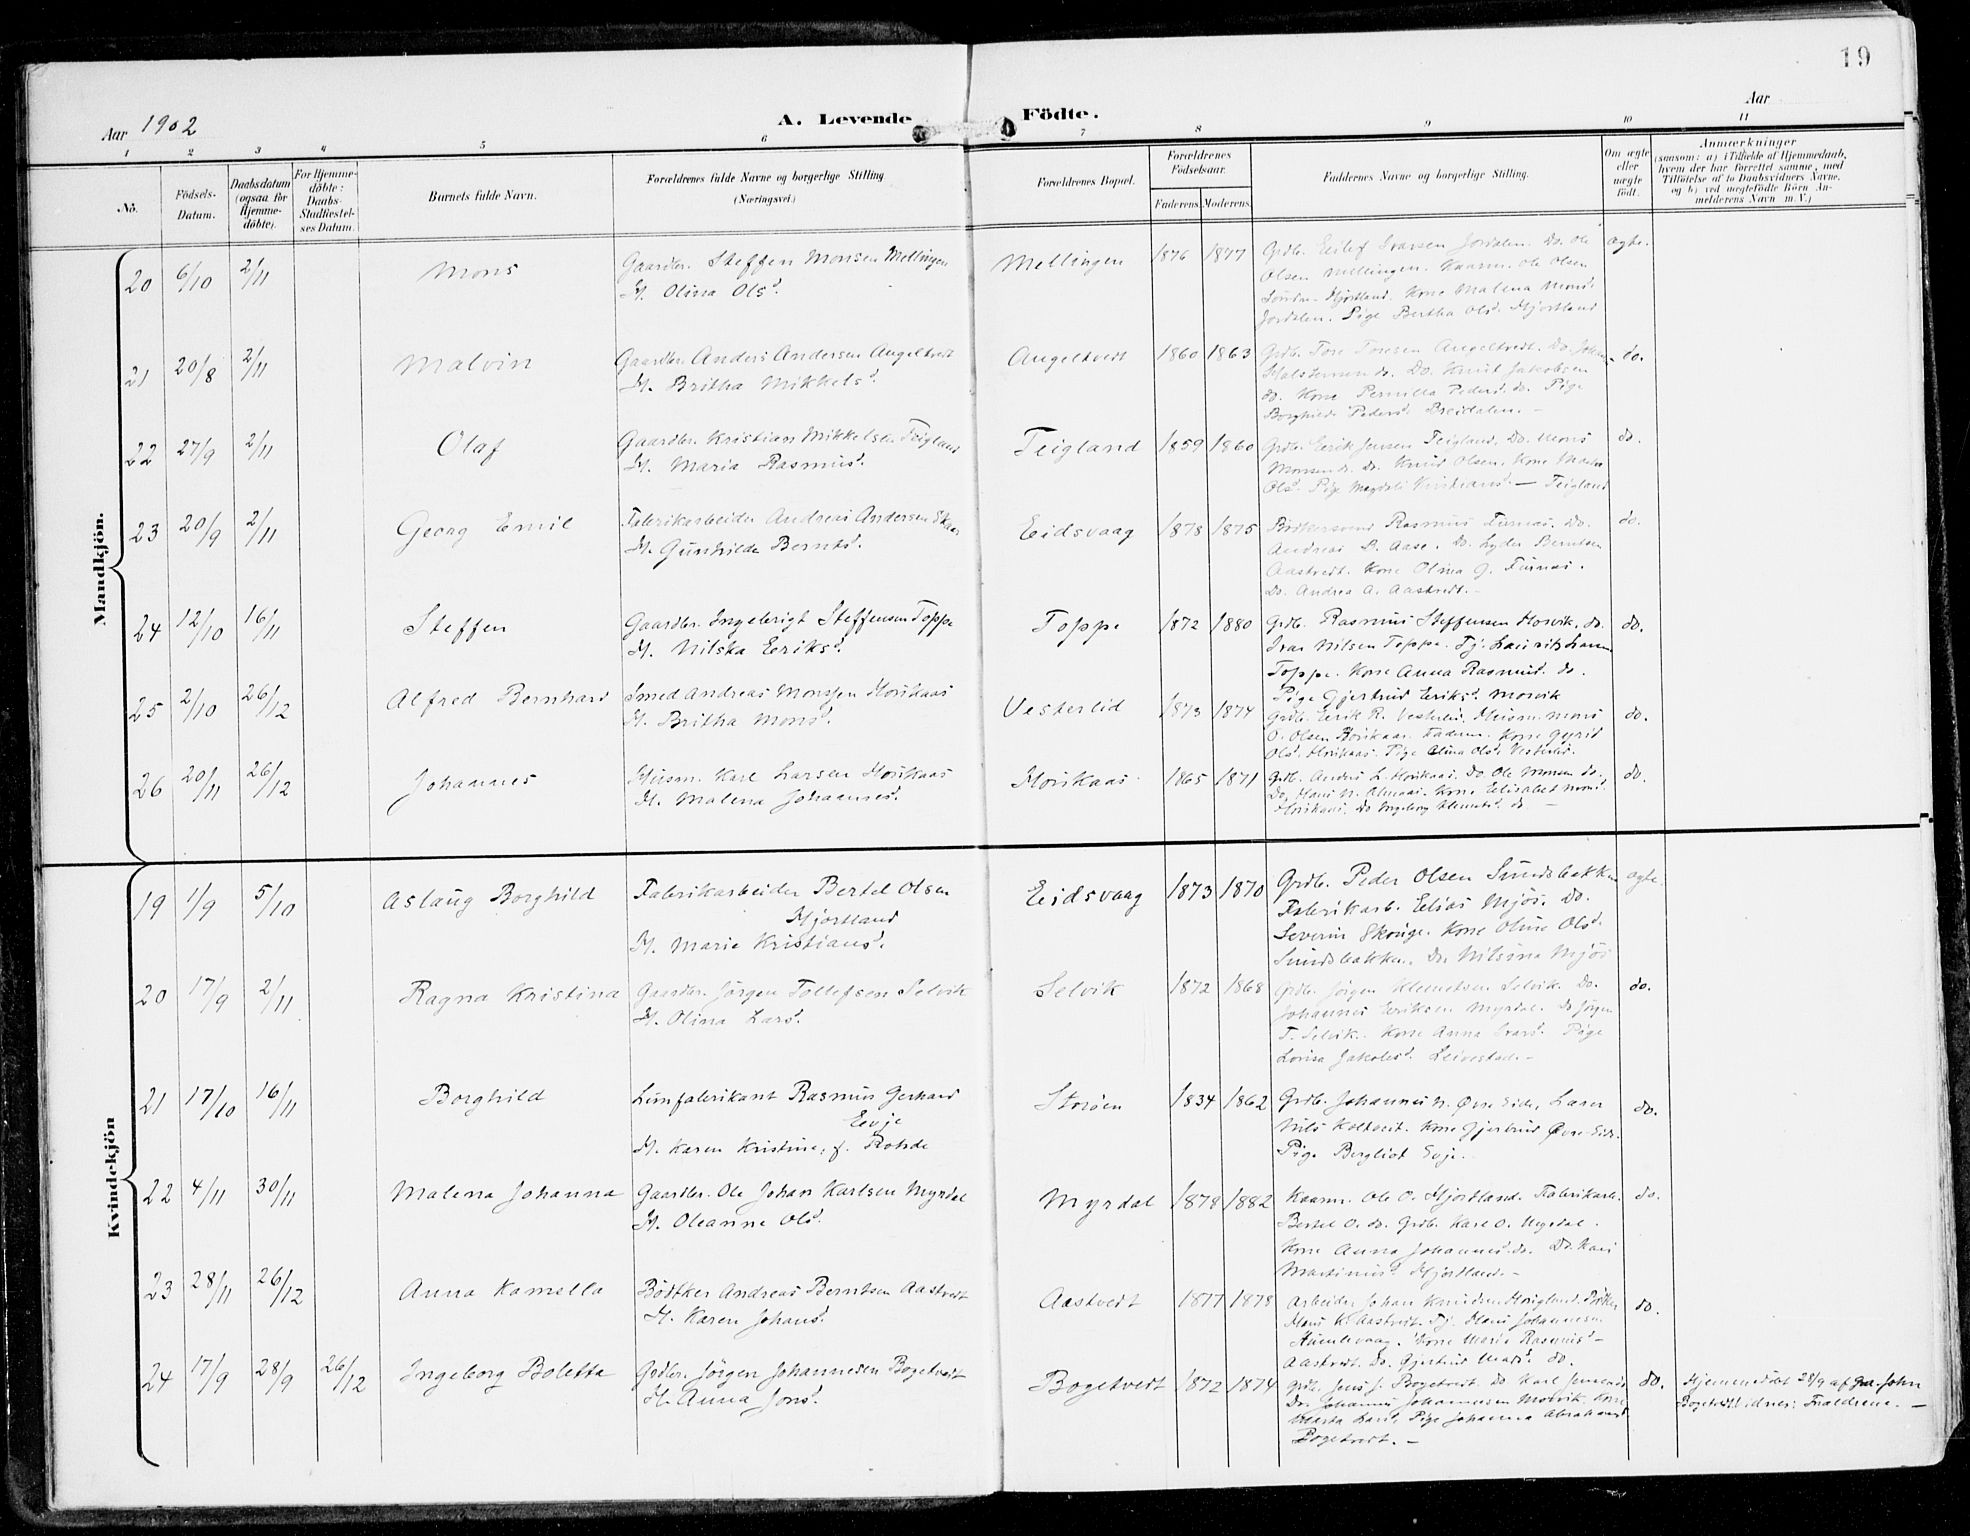 19
Aar 1902
A. Levende Födte.
Aar
1 2 3 4 5 6 7 8 9 10 11
Nō.
Födsels-Datum.
Daabsdatum (ogsaa for Hjemme-döbte).
For Hjemme-döbte: Daabs-Stadfæstel-ses Datum.
Barnets fulde Navn.
Forældrenes fulde Navne og borgerlige Stilling (Næringsvei.)
Forældrenes Bopæl.
Forældrenes Födselsaar.
Faderens. Moderens.
Faddernes Navne og borgerlige Stilling.
Om ægte eller uægte födt.
Anmærkninger
(saasom: a) i Tilfælde af Hjemmedaab,
hvem der har forrettet samme, med
Tilföielse af to Daabsvidners Navne,
og b) ved uægtefödte Börn An-
melderens Navn m. V.)
Mandkjön.
20 6/10 2/11 Mons
Gaardbr. Steffen Monsen Mellingen
H. Olina Olsd.
Mellingen 1876 1877
Grdb. Eilef Ivarsen Jordalen. Do. Ole
Olsen Mellingen. Kaarm. Ole Olsen
Hjortland. Kone Malena Monsd.
Jordalen. Pige Bertha Olsd. Hjortland
ægte.
21 20/8 2/11 Malvin
Gaardbr. Anders Andersen Angeltvedt
H. Britha Mikkelsd.
Angeltvedt 1860 1863
Grdb. Tore Toresen Angeltvedt. Do. Johan
do. Do. Knut Jakobsen
do. Kone Pernilla Pedersd. do. Pige
Borghild Pedersd. Breidalen. —
do.
22 27/9 2/11 Olaf
Gaardbr. Kristian Mikkelsen Teigland
H. Maria Rasmusd.
Teigland 1859 1860
Grdb. Eerik Jensen Teigland, Do. Mons
Monsen do. Do. Knud Olsen. Kone
Olsd. Pige Magdeli Kristiansd. — Teigland
do.
23 20/9 2/11 Georg Emil
Fabrikarbeider Andreas Andersen
H. Gunhilde Berntsd.
Eidsvaag 1878 1875
Rasmus Furnæs. Do.
Andreas B. Aase. Do. Lyder Berntsen
Aastvedt. Kone Olina G. Furnæs.
Do. Andrea A. Aastvedt.
do.
24 12/10 16/11 Steffen
Gaardbr. Ingebrigt Steffensen Toppe
H. Nilska Eeriksd.
Toppe 1872 1880
Grdb. Rasmus Steffensen Morvik. do.
Ivar Nilsen Toppe. Tj. Laurits Larsen
Toppe. Kone Anna Rasmusd. do.
Pige Gjertrud Eeriksd. Morvik
do.
25 2/10 26/12 Alfred Bernhard
Smed Andreas Monssen Horikaas
H. Britha Monsd.
Vesterlid 1873 1874
Grdb. Eerik R. Vesterlid. Husm. Mons
O. Olsen Horikaas. Faderen. Kone Gyrid
Olsd. Horikaas. Pige Olina Olsd. Vesterlid.
do.
26 20/11 26/12 Johannes
Husm. Karl Larsen Horikaas
H. Malena Johannesd.
Horikaas 1865 1871
Grdb. Anders L. Horikaas. Do. Ole Monsen do.
Do. Hans N. Kone Elisabet Monsd.
Horikaas. Do. Ingeborg do. —
do.
Kvindekjön
19 1/9 5/10 Aslaug Borghild
Fabrikarbeider Bertel Olsen
Hjortland
H. Marie Kristiansd.
Eidsvaag 1873 1870
Grdb. Peder Olsen Sundsbakken
Fabrikarb. Elias Mjös. Do.
Severin Skouge. Kone Oline Olsd.
Sundsbakken. Do. Nilsina Mjös
ægte.
20 17/9 2/11 Ragna Kristina
Gaardbr. Jörgen Tollefsen Selvik
H. Olina Larsd.
Selvik 1872 1868
Grdb. Jörgen Klemetsen Selvik. Do.
Johannes Eeriksen Myrdal. Do. Jörgen
T. Selvik. Kone Anna Ivarsd. Pige
Lovisa Jakobsd. Leivestad. —
do.
21 17/10 16/11 Borghild
Limfabrikant Rasmus Gerhard
Eevje
H. Karen Kristine, f. Rohde
Storöen 1834 1862
Grdb. Johannes N. Øvre Eide, Laurs
Nils Kaltvedt. Kone Gjertrud Øvre-Eide.
Pige Bergliot Evje.
do.
22 4/11 30/11 Malena Johanna
Gaardbr. Ole Johan Karlsen Myrdal
H. Oleanne Olsd.
Myrdal 1878 1882
Kaarm. Ole O. Hjortland. Fabrikarb.
Bertel O. do. Grdb. Karl O. Myrdal.
Kone Anna Johannesd. do. Do. Kari
Martinusd. Hjortland. —
do.
23 28/11 26/12 Anna Kamella
Bödtker Andreas Berntsen Aastvedt
H. Karen Johansd.
Aastvedt 1877 1878
Arbeider Johan Knudsen Bödker
Hans K. Aastvedt. Tj. Hans Johannesen
Kone Marie Rasmusd. —
Aastvedt. Do. Gjertrud do.
do.
24 17/9 28/9 26/12 Ingeborg Boletta
Grdbr. Jörgen Johannesen Bogetvedt
H. Anna Jonsd.
Bogetvedt 1872 1874
Grdb. Jens J. Bogetvedt. Do. Karl Jensen do.
Do. Johannes Johannesen Morvik. Kone
Marta Larsd. Pige Johanna Abrahamsd.
Bogetvedt. —
do.
Hjemmedöbt 28/9 af John
Bogetvedt Vidner: Forældrene. —